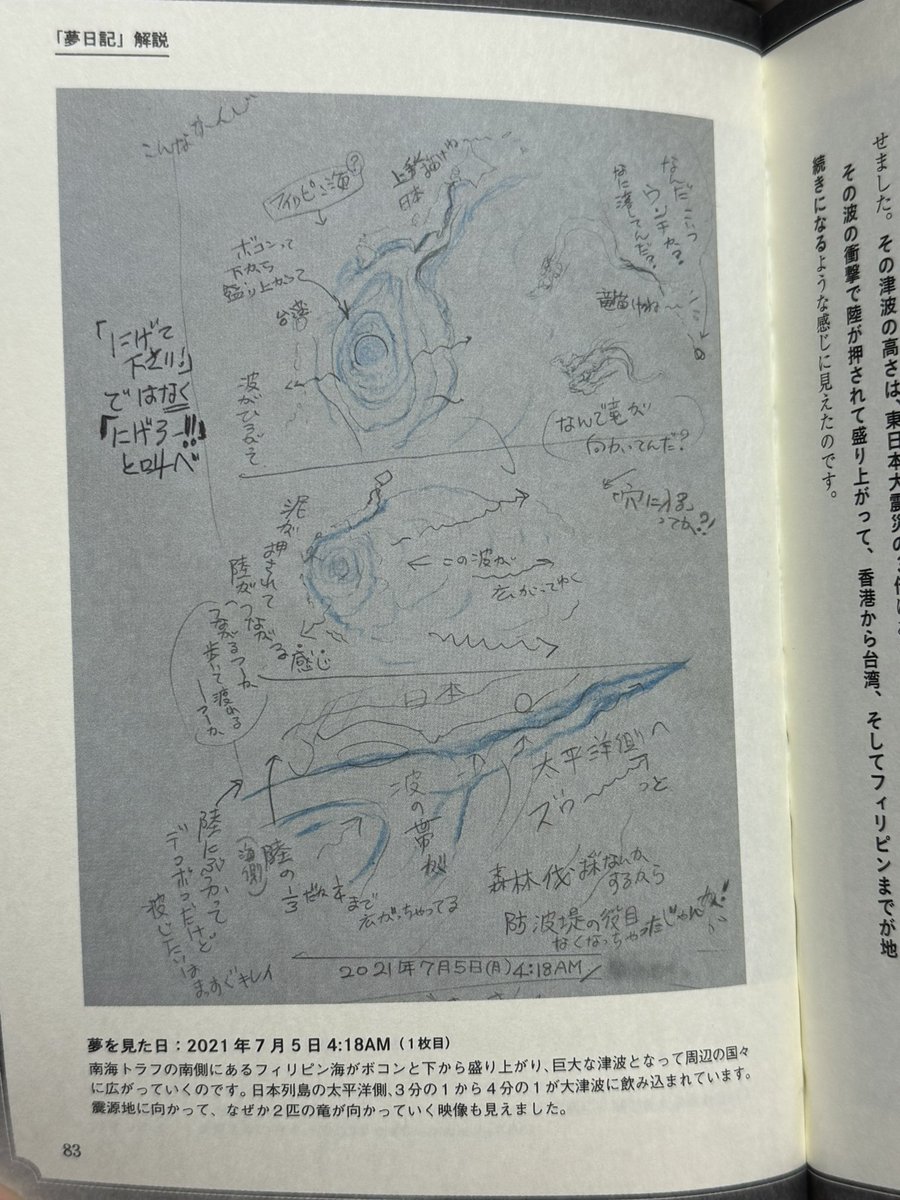 「夢日記」 解説
こんなかーんじ
フィリピン海?
上手く描けね〜
日本
なんだ こいつ
ウンチか?
なに潰してんだ?
ボコンって
下から
盛り上がって
台湾
竜描けね〜
「にげて
下さい」
ではなく
「にげろー!!」
と叫べ
波がひろがって
なんで竜が
向かってんだ?
穴に入る
ってか?!
泥が押されて
陸が
つながる感じ
つながるつーか
歩いて渡れる
ーつーか
この波が
広がってゆく
日本
太平洋側へ
ズゥ〜
っと
波の帯が
陸にぶつかって
デコボコだけど
波じたいは
まっすぐキレイ
(海側)
陸の1/3
まで
広がっちゃってる
森林伐採なんか
するから
防波堤の役目
なくなっちゃったじゃんか!
2021年7月5日(月)4:18AM
夢を見た日:2021年7月5日4:18AM(1枚目)
南海トラフの南側にあるフィリピン海がボコンと下から盛り上がり、巨大な津波となって周辺の国々
に広がっていくのです。日本列島の太平洋側、3分の1から4分の1が大津波に飲み込まれています。
震源地に向かって、なぜか2匹の竜が向かっていく映像も見えました。
83
せました。その津波の高さは、東日本大震災の3倍
その波の衝撃で陸が押されて盛り上がって、香港から台湾、そしてフィリピンまでが地
続きになるような感じに見えたのです。